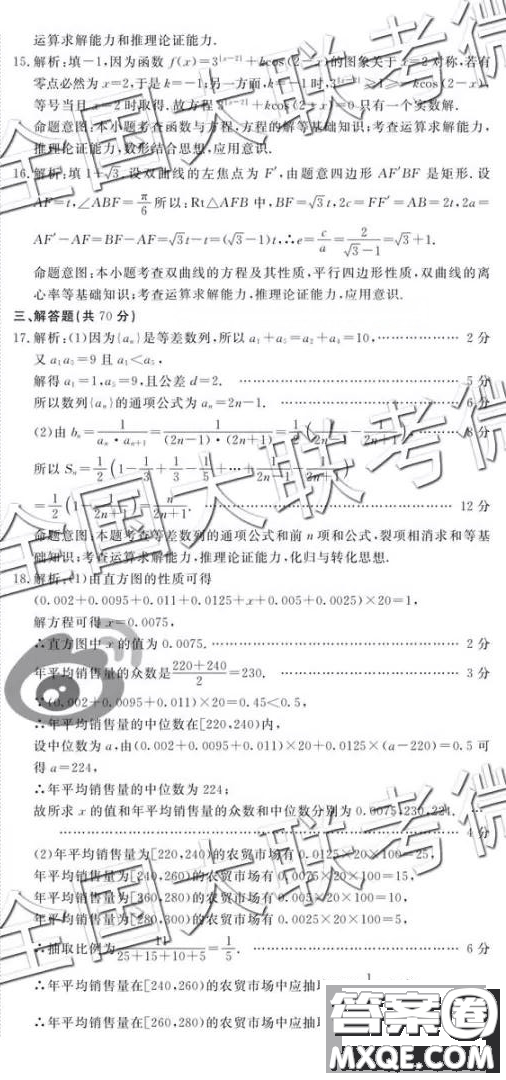 运算求解能力和推理论证能力.
15.解析:填-1,因为函数 f(x)=3^{|x-2|}+kcos(2-x)的图象关于 x=2 对称,若有
零点必然为 x=2,于是 k=-1;另一方面,k=-1 时,3^{|x-2|}≥1≥-kcos(2-x),
等号当且 x=2 时取得.故方程 3^{|x-2|}+kcos(2-x)=0 只有一个实数解.
命题意图:本小题考查函数与方程,方程的解等基础知识;考查运算求解能力,
推理论证能力,数形结合思想,应用意识.
16.解析:填 1+√3.设双曲线的左焦点为 F′,由题意四边形 AF′BF 是矩形.设
AF=t,∠ABF=π/6 所以:Rt△AFB 中,BF=√3t,2c=FF′=AB=2t,2a=
AF′-AF=BF-AF=√3t-t=(√3-1)t,∴e=c/a=2/(√3-1)=√3+1.
命题意图:本小题考查双曲线的方程及其性质,平行四边形性质,双曲线的离
心率等基础知识;考查运算求解能力,推理论证能力,应用意识.
三、解答题(共 70 分)
17.解析:(1)因为{aₙ}是等差数列,所以 a₁+a₅=a₂+a₄=10,………………… 2 分
又 a₁a₅=9 且 a₁<a₅,
解得 a₁=1,a₅=9,且公差 d=2. ………………………………… 5 分
所以数列{aₙ}的通项公式为 aₙ=2n-1. ………………………… 6 分
(2)由 bₙ=1/(aₙ·aₙ₊₁)=1/((2n-1)·(2n+1))=1/2(1/(2n-1)-1/(2n+1)). ………… 8 分
所以 Sₙ=1/2(1-1/3+1/3-1/5+…+1/(2n-1)-1/(2n+1))
=1/2(1-1/(2n+1))=n/(2n+1). ………………………………… 12 分
命题意图:本题考查等差数列的通项公式和前 n 项和公式,裂项相消求和等基
础知识;考查运算求解能力,推理论证能力,化归与转化思想.
18.解析:(1)由直方图的性质可得
(0.002+0.0095+0.011+0.0125+x+0.005+0.0025)×20=1,
解方程可得 x=0.0075,
∴直方图中 x 的值为 0.0075. ………………………………… 2 分
年平均销售量的众数是(220+240)/2=230. ………………………… 3 分
∵(0.002+0.0095+0.011)×20=0.45<0.5,
∴年平均销售量的中位数在[220,240)内,
设中位数为 a,由(0.002+0.0095+0.011)×20+0.0125×(a-220)=0.5 可
得 a=224,
∴年平均销售量的中位数为 224;
故所求 x 的值和年平均销售量的众数和中位数分别为 0.0075,230,224. …
………………………………………………………………… 4 分
(2)年平均销售量为[220,240)的农贸市场有 0.0125×20×100=25,
年平均销售量为[240,260)的农贸市场有 0.0075×20×100=15,
年平均销售量为[260,280)的农贸市场有 0.005×20×100=10,
年平均销售量为[280,300)的农贸市场有 0.0025×20×100=5,
∴抽取比例为11/(25+15+10+5)=1/5. ………………………… 6 分
∴年平均销售量在[240,260)的农贸市场中应抽
∴年平均销售量在[260,280)的农贸市场中应抽
全国大联考微
全国大联考微
全国大联考微
答案圈
MXQE.COM